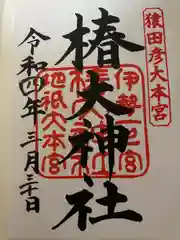 猿田彦大本宮
伊勢一之宮
椿大神社
地祇大本宮
令和四年三月三十日